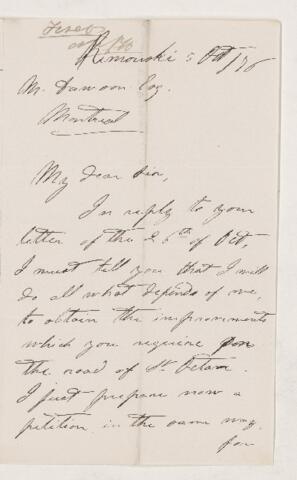 Rimouski 5 Oct / 76
M. Dawson Esq.
Montreal
My dear Sir,
In reply to your
letter of the 2 6th of Oct,
I must tell you that I will
do all what depends of me,
to obtain the improvements
which you require for
the road of St. Octave.
I just prepare now a
petition in the same way
for